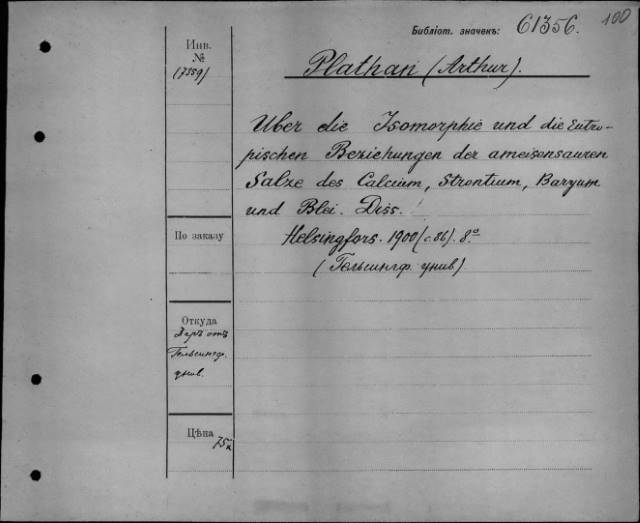 Библіот. значекъ: 61356. 100
Инв.
№
(7359)
Plathan (Arthur).
Über die Isomorphie und die Eutro-
pischen Beziehungen der ameisensauren
Salze des Calcium, Strontium, Baryum
und Blei. Diss.
По заказу
Helsingfors. 1900 (с. 86). 8°
(Гельсингф. унив.)
Откуда
Даръ отъ
Гельсингф.
унив.
Цѣна
75к